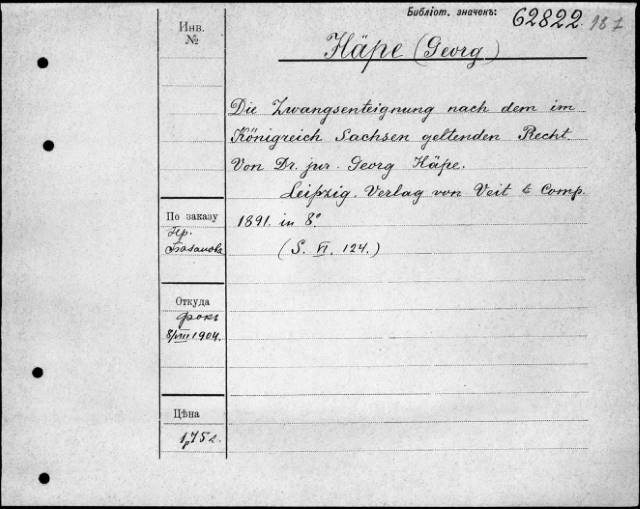 Библіот. значекъ: 62822. 187
Häpe (Georg)
Инв.
№
Die Zwangsenteignung nach dem im
Königreich Sachsen geltenden Recht
Von Dr. jur. Georg Häpe.
Leipzig. Verlag von Veit & Comp.
1891. in 8°
(S. VI. 124.)
По заказу
Пр.
Базанова
Откуда
Фокъ
8/VIII 1904.
Цѣна
1,75